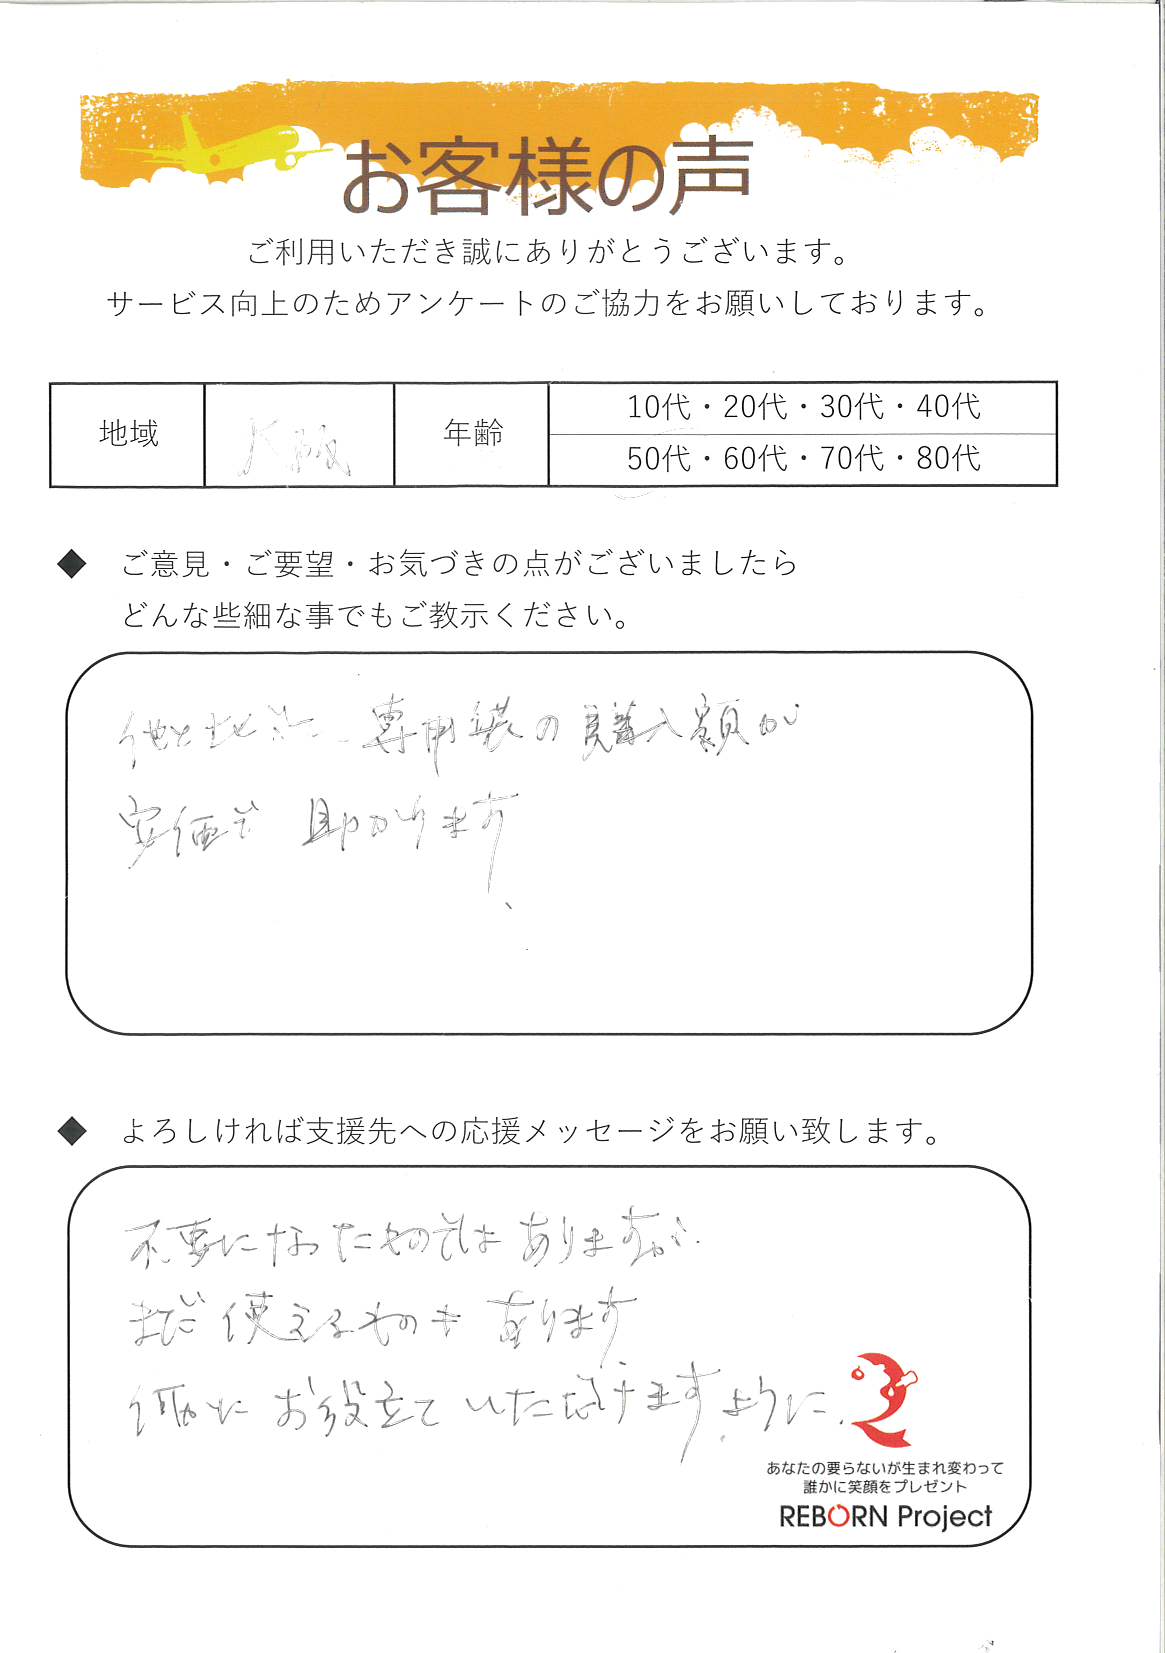 お客様の声
ご利用いただき誠にありがとうございます。
サービス向上のためアンケートのご協力をお願いしております。
地域 大阪 年齢 10代・20代・30代・40代
50代・60代・70代・80代
◆ ご意見・ご要望・お気づきの点がございましたら
どんな些細な事でもご教示ください。
他と比べ 専用袋の購入額が
安価で 助かります
◆ よろしければ支援先への応援メッセージをお願い致します。
不要になったものではありますが
まだ使えるものもあります
何かにお役立ていただけますように
あなたの要らないが生まれ変わって
誰かに笑顔をプレゼント
REBORN Project